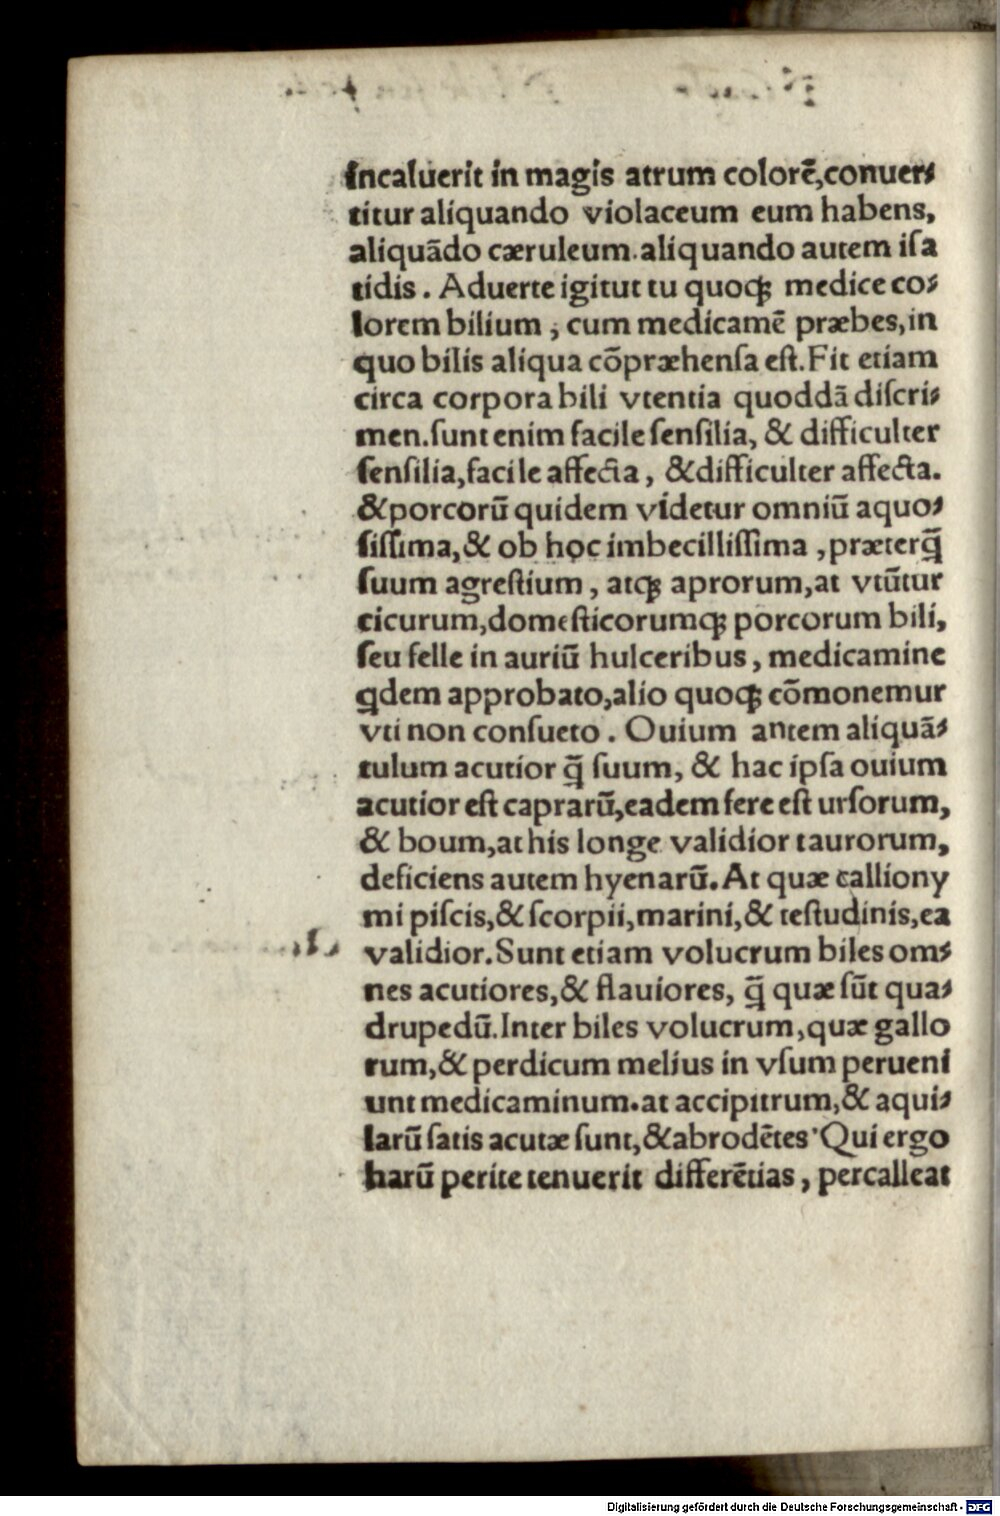 incaluerit in magis atrum colorē,conuer⸗
titur aliquando violaceum eum habens,
aliquãdo cæruleum.aliquando autem iſa
tidis. Aduerte igitut tu quoqꝫ medice co⸗
lorem bilium, cum medicamē præbes,in
quo bilis aliqua cõpræhenſa eſt.Fit etiam
circa corpora bili vtentia quoddã diſcri⸗
men.ſunt enim facile ſenſilia, & difficulter
ſenſilia,facile affecta, &difficulter affecta.
&porcorũ quidem videtur omniũ aquo⸗
ſiſſima,& ob hoc imbecilliſſima ,præterq̃
ſuum agreſtium, atqꝫ aprorum,at vtũtur
cicurum,domeſticorumqꝫ porcorum bili,
ſeu felle in auriũ hulceribus, medicamine
qdem approbato,alio quoqꝫ cõmonemur
vti non conſueto. Ouium antem aliquã⸗
tulum acutior q̃ ſuum, & hac ipſa ouium
acutior eſt caprarũ,eadem fere eſt urſorum,
& boum,at his longe validior taurorum,
deficiens autem hyenarũ.At quæ calliony
mi piſcis,& ſcorpii,marini,& teſtudinis,ea
validior.Sunt etiam volucrum biles om⸗
nes acutiores,& flauiores, q̃ quæ ſũt qua⸗
drupedũ.Inter biles volucrum,quæ gallo
rum,& perdicum melius in vſum perueni
unt medicaminum.at accipitrum,& aqui⸗
larũ ſatis acutæ ſunt,&abrodētes·Qui ergo
harũ perite tenuerit differētias, percalleat
Digitalisierung gefördert durch die Deutsche Forschungsgemeinschaft - DFG